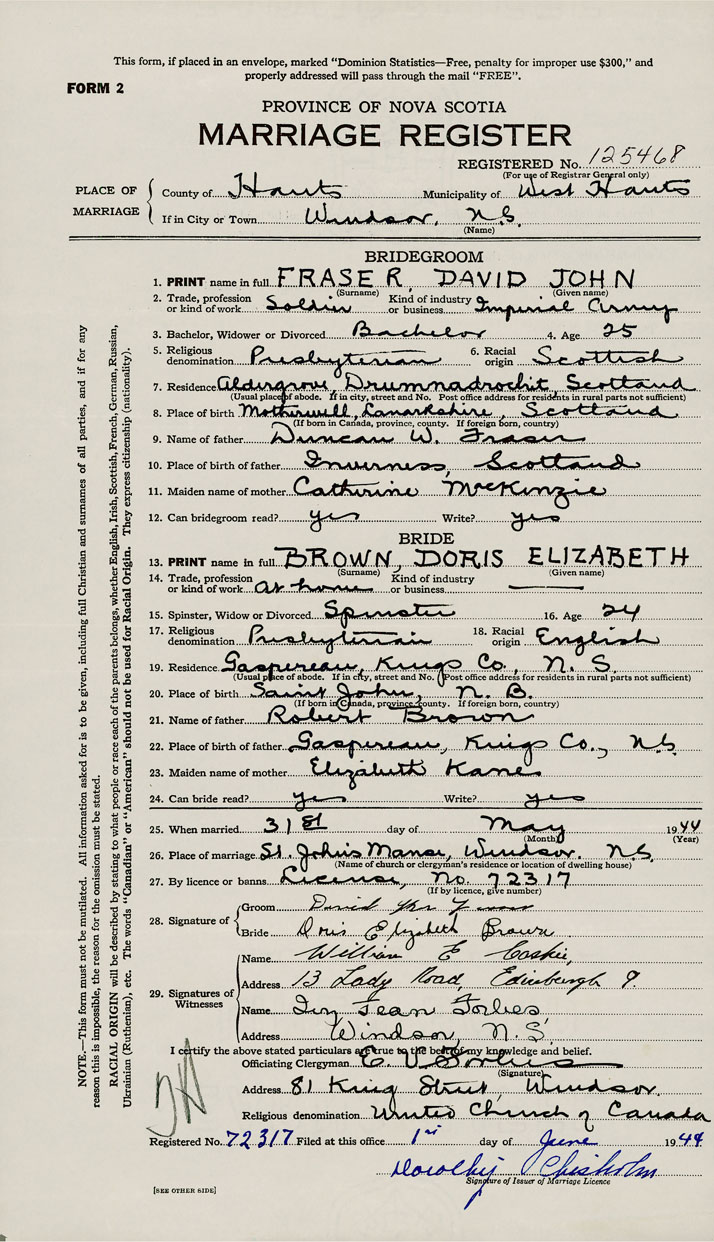 This form, if placed in an envelope, marked "Dominion Statistics—Free, penalty for improper use $300," and
properly addressed will pass through the mail "FREE".
FORM 2
PROVINCE OF NOVA SCOTIA
MARRIAGE REGISTER
REGISTERED No. 125468
(For use of Registrar General only)
PLACE OF MARRIAGE
County of Hants Municipality of West Hants
If in City or Town Windsor, N.S.
(Name)
BRIDEGROOM
1. PRINT name in full FRASER, DAVID JOHN
(Surname) (Given name)
2. Trade, profession or kind of work Soldier Kind of industry or business Imperial Army
3. Bachelor, Widower or Divorced Bachelor 4. Age 25
5. Religious denomination Presbyterian 6. Racial origin Scottish
7. Residence Aldergrove, Drumnadrochit, Scotland
(Usual place of abode. If in city, street and No. Post office address for residents in rural parts not sufficient)
8. Place of birth Motherwell, Lanarkshire, Scotland
(If born in Canada, province, county. If foreign born, country)
9. Name of father Duncan W. Fraser
10. Place of birth of father Inverness, Scotland
11. Maiden name of mother Catherine McKenzie
12. Can bridegroom read? yes Write? yes
BRIDE
13. PRINT name in full BROWN, DORIS ELIZABETH
(Surname) (Given name)
14. Trade, profession or kind of work at home Kind of industry or business
15. Spinster, Widow or Divorced Spinster 16. Age 24
17. Religious denomination Presbyterian 18. Racial origin English
19. Residence Gaspereau, Kings Co., N. S.
(Usual place of abode. If in city, street and No. Post office address for residents in rural parts not sufficient)
20. Place of birth Saint John, N. B.
(If born in Canada, province, county. If foreign born, country)
21. Name of father Robert Brown
22. Place of birth of father Gaspereau, Kings Co., N.S.
23. Maiden name of mother Elizabeth Kane
24. Can bride read? yes Write? yes
25. When married 31st day of May 1944
(Month) (Year)
26. Place of marriage St. John's Manse, Windsor. N.S.
(Name of church or clergyman's residence or location of dwelling house)
27. By licence or banns License, No. 72317
(If by licence, give number)
28. Signature of
Groom David Jhn Fraser
Bride Doris Elizabeth Brown
29. Signatures of Witnesses
Name William E
Address 13 Lady Road, Edinburgh 9.
Name Ivy Jean Forbes,
Address Windsor, N.S.
I certify the above stated particulars are true to the best of my knowledge and belief.
Officiating Clergyman E. V. Forbes
(Signature)
Address 81 King Street, Windsor.
Religious denomination United Church of Canada
Registered No. 72317 Filed at this office 1st day of June 1944
Dorothy Chisholm
Signature of Issuer of Marriage Licence
[SEE OTHER SIDE]
NOTE.—This form must not be mutilated. All information asked for is to be given, including full Christian and surnames of all parties, and if for any
reason this is impossible, the reason for the omission must be stated.
RACIAL ORIGIN will be described by stating to what people or race each of the parents belongs, whether English, Irish, Scottish, French, German, Russian,
Ukrainian (Ruthenian), etc. The words "Canadian" or "American" should not be used for Racial Origin. They express citizenship (nationality).